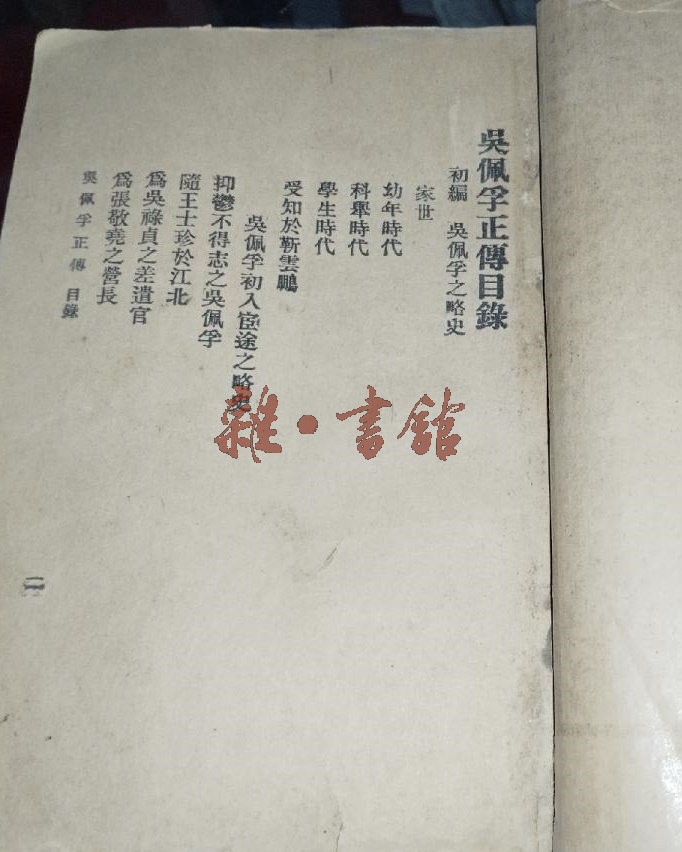 吳佩孚正傳目錄
初編 吳佩孚之略史
家世
幼年時代
科舉時代
學生時代
受知於靳雲鵬
吳佩孚初入宦途之略史
抑鬱不得志之吳佩孚
隨王士珍於江北
爲吳祿貞之差遣官
爲張敬堯之營長
吳佩孚正傳 目錄
一
雜·書館